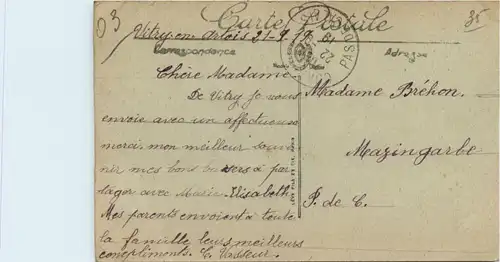 03
35
Carte Postale
Vitry-en-Artois 21-9-19
Correspondance
Adresse
PAS
22
Chère Madame
De Vitry je vous
envoie avec un affectueux
merci, mon meilleur souve
nir mes bons baisers à par
tager avec Marie-Elisabeth
Mes parents envoient à toute
la famille leurs meilleurs
compliments. C. Vasseur.
Madame Bréhon.
Mazingarbe
P. de C.